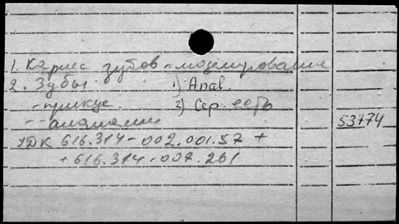 1. Кариес зубов - моделирование
2. Зубы 1) Anal.
2) Сер. есть
- анатомия
53774
УДК 616.314-002.001.57 +
+ 616.314-007.261